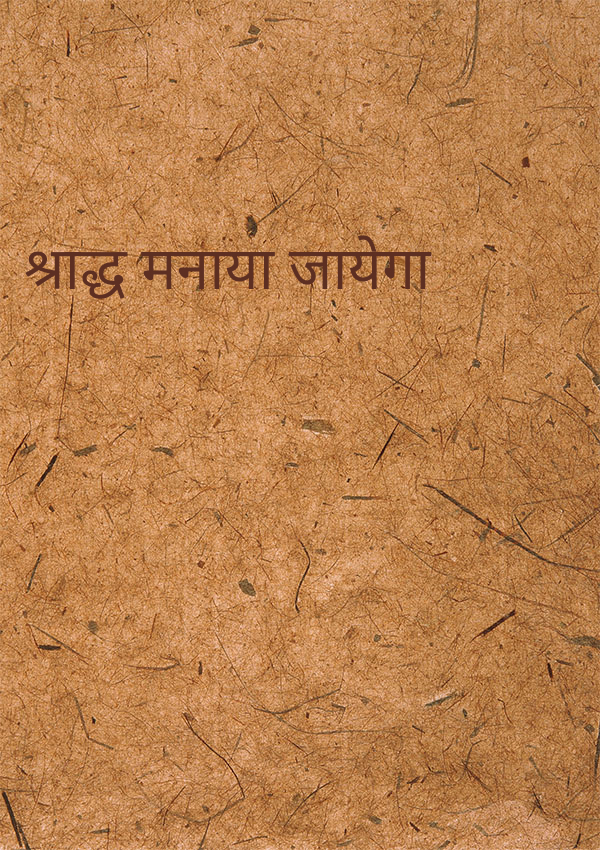 श्राद्ध मनाया जायेगा